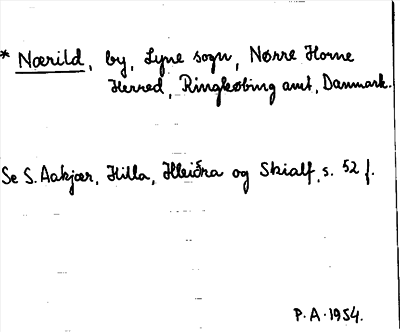 * Nærild, by, Lyne sogn, Nørre Horne
Herred, Ringkøbing amt, Danmark.
Se S. Aakjær, Hilla, Hleiðra og Skialf, s. 52 f.
P.A. 1954.